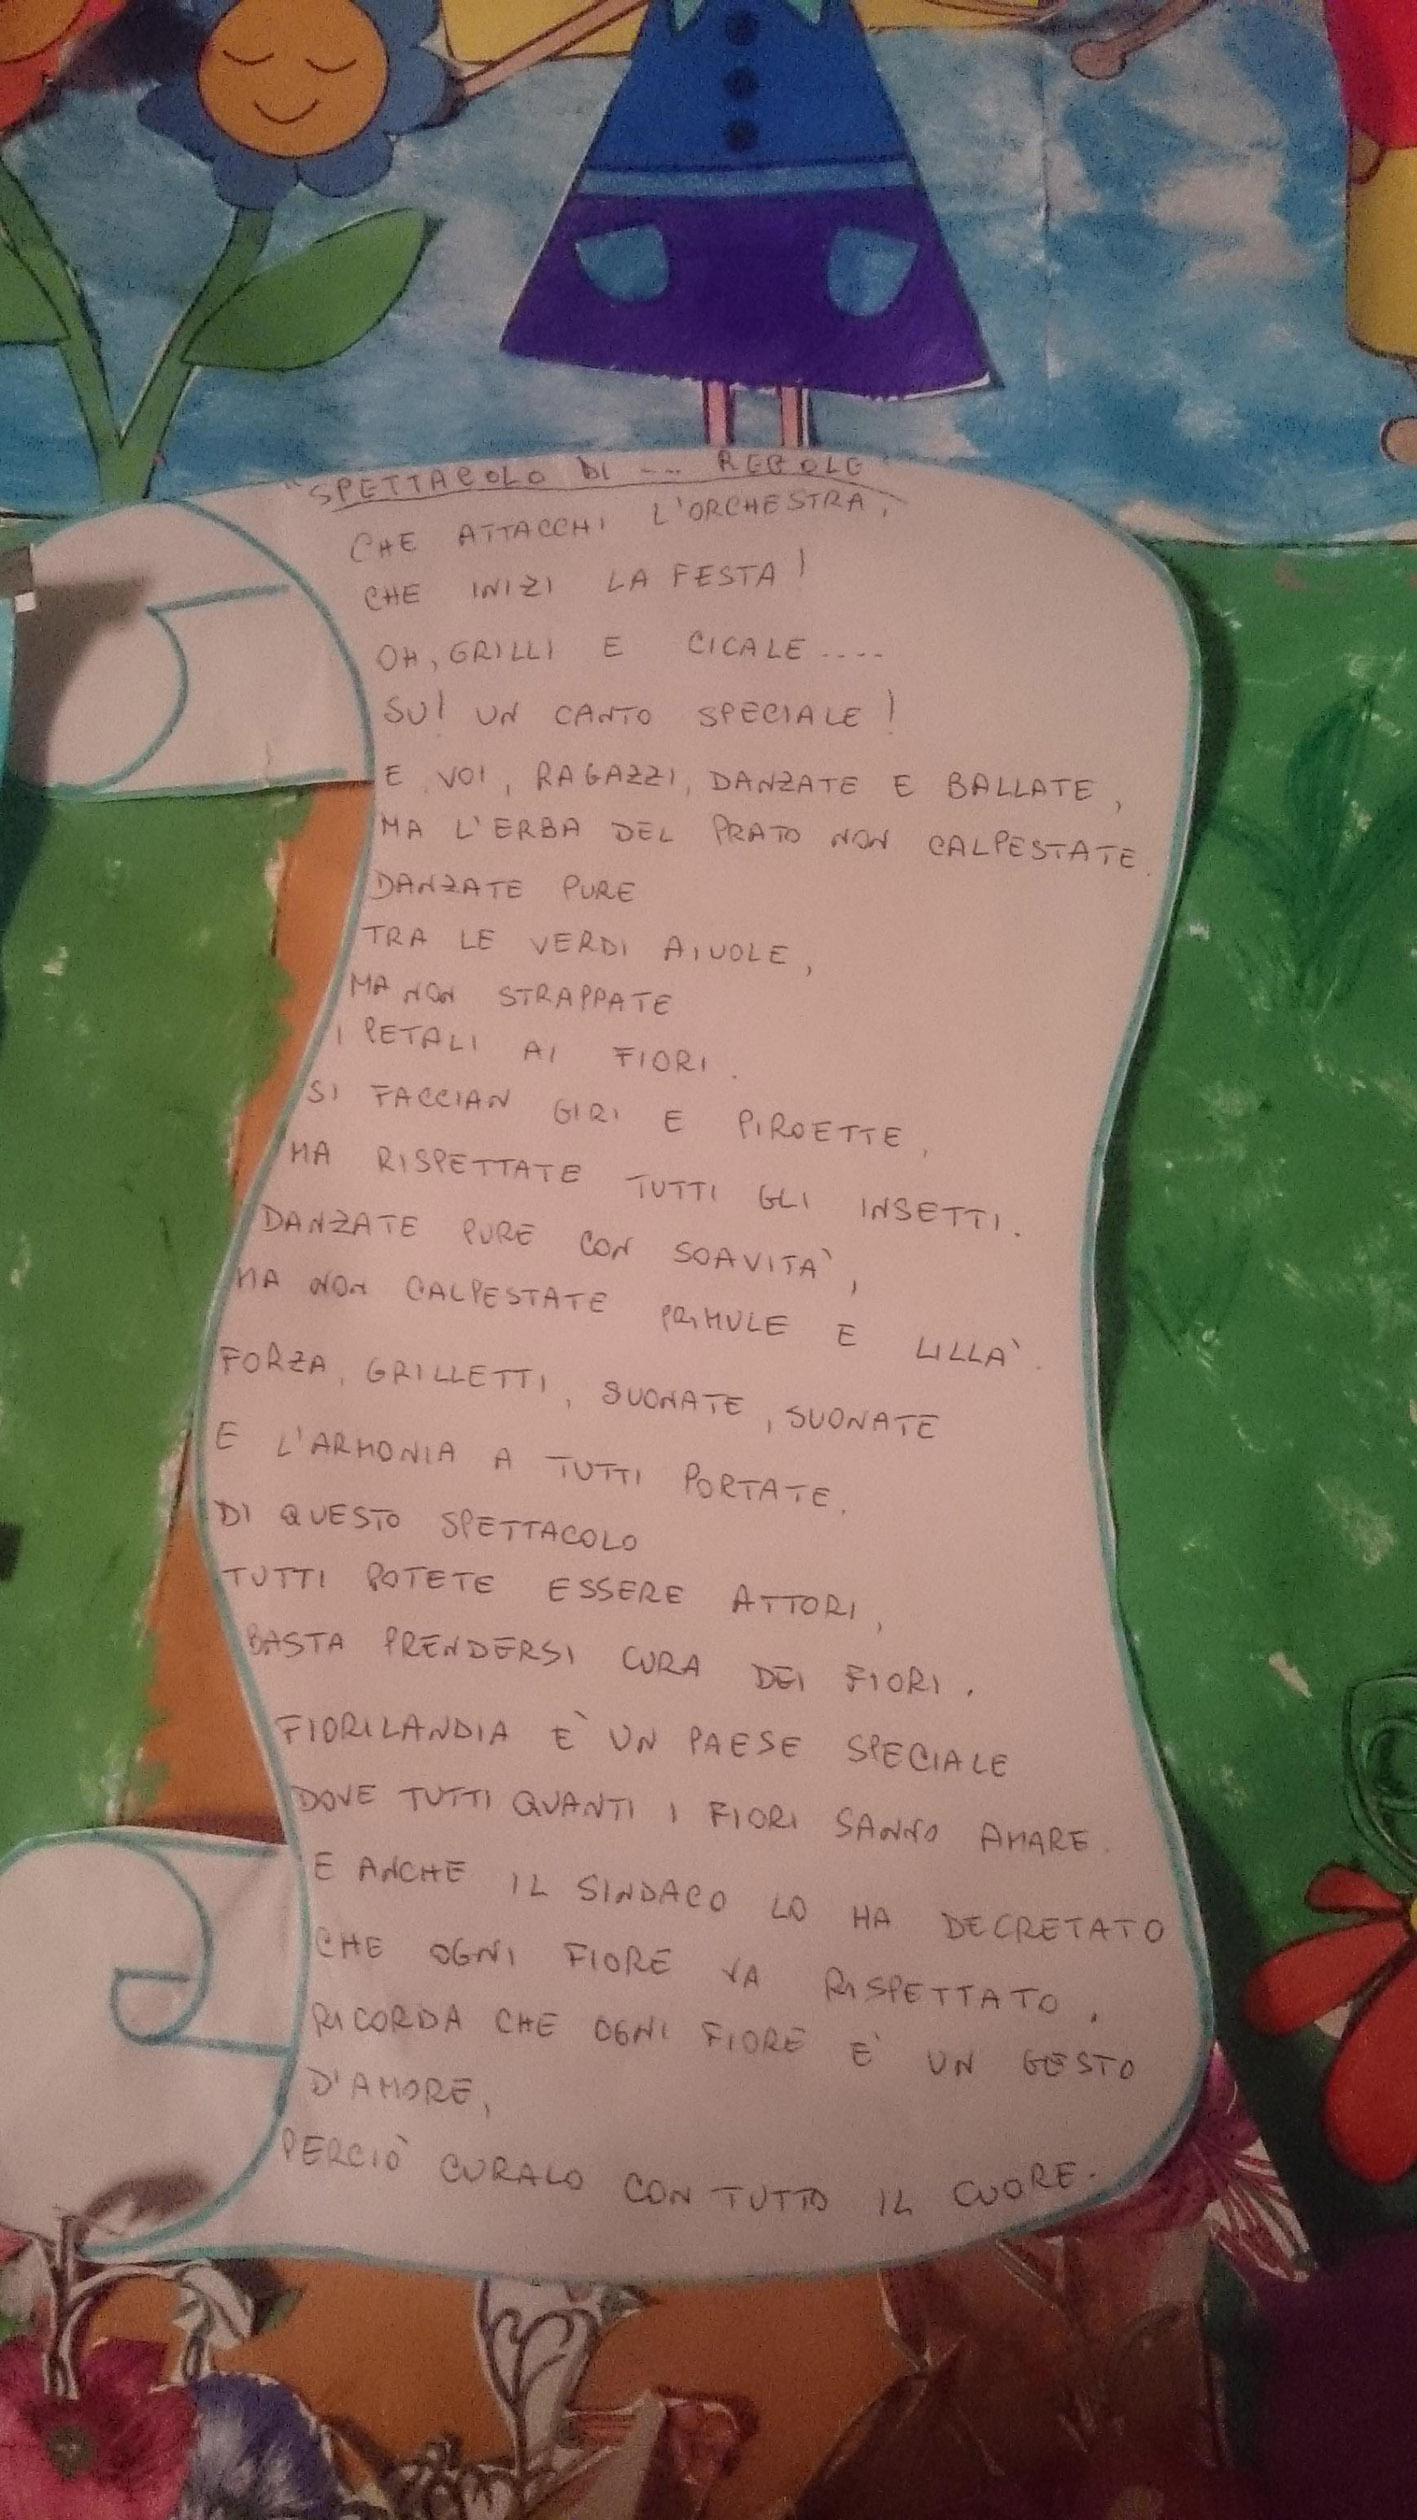 "SPETTACOLO DI ... REGOLE"
CHE ATTACCHI L'ORCHESTRA,
CHE INIZI LA FESTA!
OH, GRILLI E CICALE....
SU! UN CANTO SPECIALE!
E VOI, RAGAZZI, DANZATE E BALLATE,
MA L'ERBA DEL PRATO NON CALPESTATE.
DANZATE PURE
TRA LE VERDI AIUOLE,
MA NON STRAPPATE
I PETALI AI FIORI.
SI FACCIAN GIRI E PIROETTE,
MA RISPETTATE TUTTI GLI INSETTI.
DANZATE PURE CON SOAVITA',
MA NON CALPESTATE PRIMULE E LILLA'.
FORZA, GRILLETTI, SUONATE, SUONATE
E L'ARMONIA A TUTTI PORTATE.
DI QUESTO SPETTACOLO
TUTTI POTETE ESSERE ATTORI,
BASTA PRENDERSI CURA DEI FIORI.
FIORILANDIA E' UN PAESE SPECIALE
DOVE TUTTI QUANTI I FIORI SANNO AMARE.
E ANCHE IL SINDACO LO HA DECRETATO
CHE OGNI FIORE VA RISPETTATO.
RICORDA CHE OGNI FIORE E' UN GESTO
D'AMORE,
PERCIO' CURALO CON TUTTO IL CUORE.